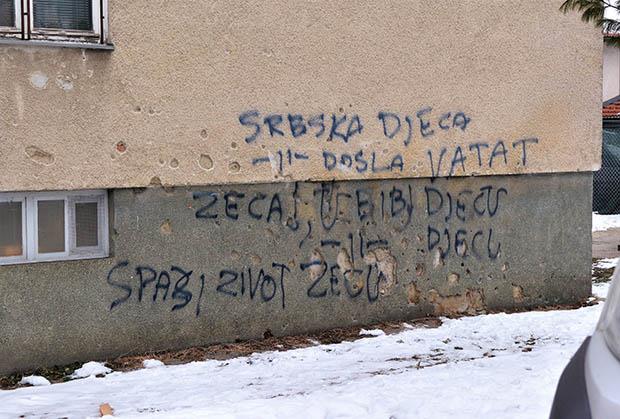 SRBSKA DJECA
–II– DOŠLA VATAT
ZECA, UBIBJ DJECU
–II– DJECU
SPAZI ZIVOT ZECU